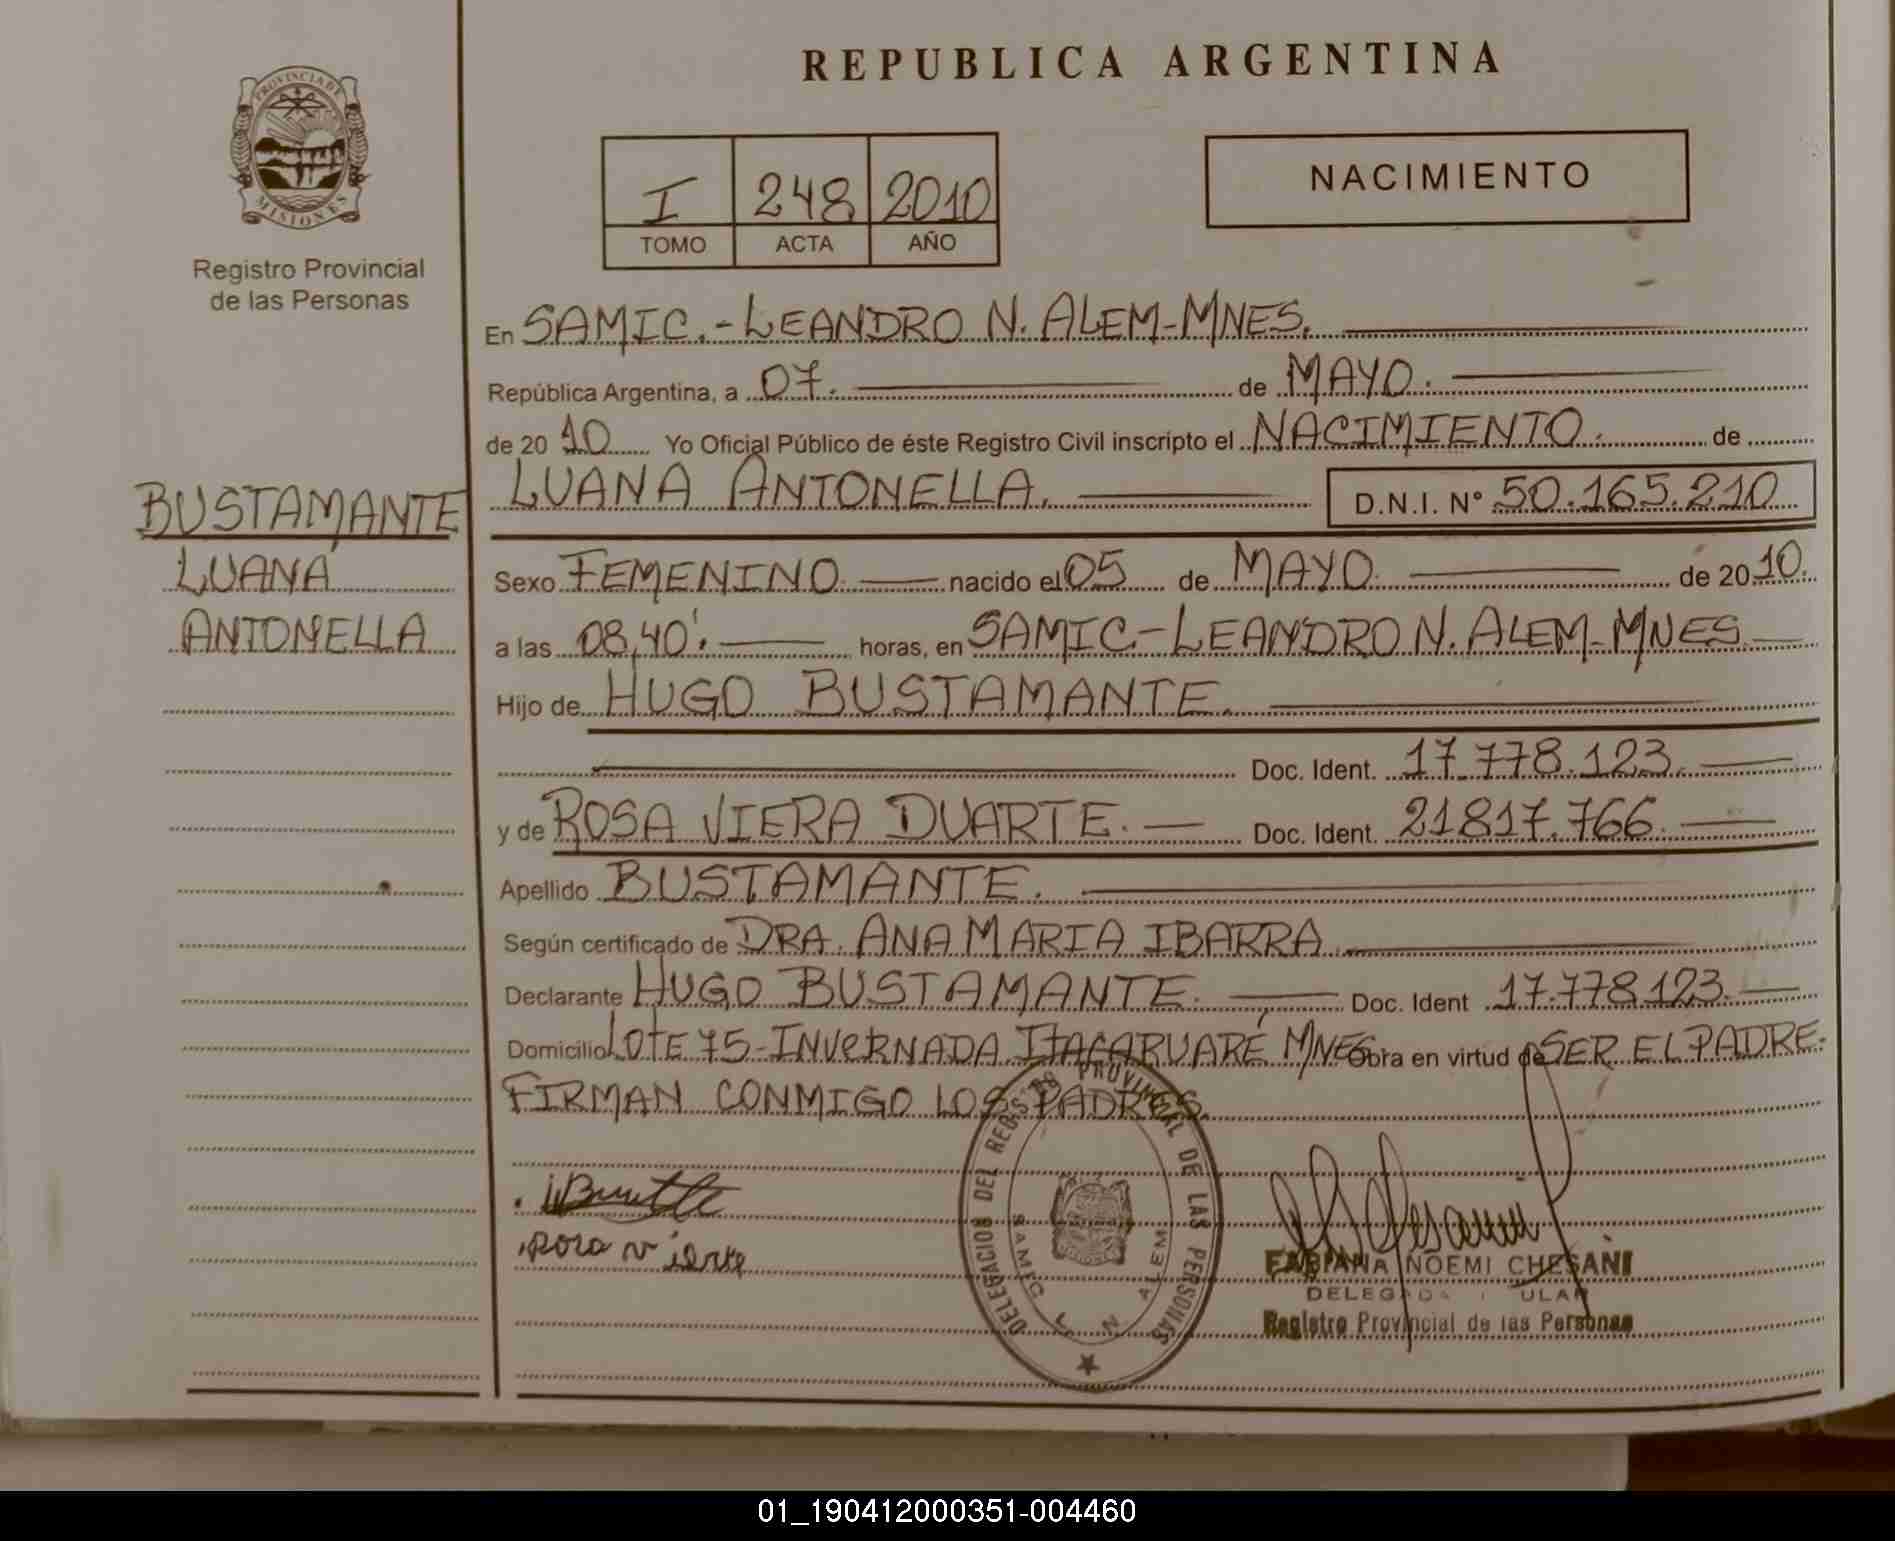 REPUBLICA ARGENTINA
PROVINCIA DE
MISIONES
Registro Provincial
de las Personas
I 248 2010
TOMO ACTA AÑO
NACIMIENTO
En SAMIC.-LEANDRO N. ALEM-MNES.
República Argentina, a 07. de MAYO.
de 20 10 Yo Oficial Público de éste Registro Civil inscripto el NACIMIENTO. de
LUANA ANTONELLA. D.N.I. N° 50.165.210
BUSTAMANTE
LUANA
ANTONELLA
Sexo FEMENINO. nacido el 05 de MAYO. de 20 10.
a las 08,40'. horas, en SAMIC.-LEANDRO N. ALEM-MNES
Hijo de HUGO BUSTAMANTE.
Doc. Ident. 17.778.123.
y de ROSA VIERA DUARTE. Doc. Ident. 21817.766.
Apellido BUSTAMANTE.
Según certificado de DRA. ANA MARIA IBARRA.
Declarante HUGO BUSTAMANTE. Doc. Ident 17.778.123.
Domicilio LOTE 75-INVERNADA ITACARUARÉ MNES Obra en virtud de SER EL PADRE.
FIRMAN CONMIGO LOS PADRES.
DELEGACION DEL REGISTRO PROVINCIAL DE LAS PERSONAS
SAMIC L. N. ALEM
FABIANA NOEMI CHESANI
DELEGADA
Registro Provincial de las Personas
01_190412000351-004460